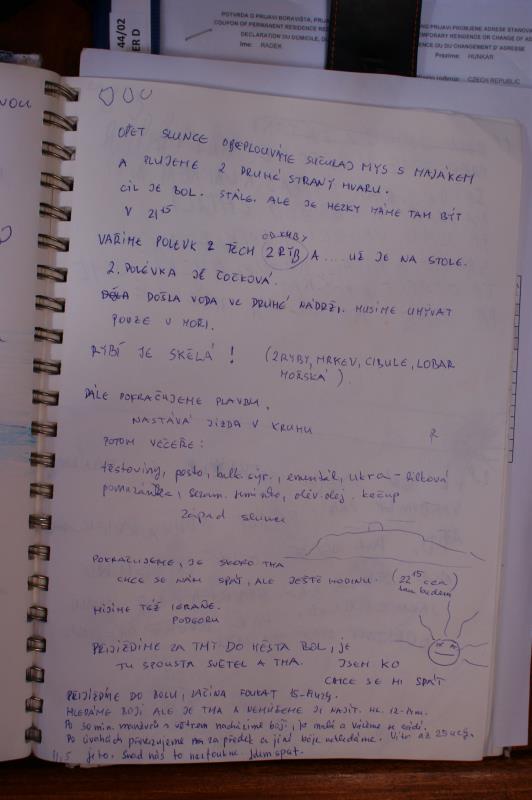 44/02
ER D
POTVRDA O PRIJAVI BORAVIŠTA, PRIJAV
COUPON OF PERMANENT RESIDENCE REG
DECLARATION DU DOMICILE, D
Ime: RADEK
PRIJAVI PROMJENE ADRESE STANOVA
TEMPORARY RESIDENCE OR CHANGE OF AD
CE OU DU CHANGEMENT D'ADRESSE
Prezime: HUNKAR
CZECH REPUBLIC
OPĚT SLUNCE OBEPLOUVÁME SUĆURAJ MYS S MAJÁKEM
A PLUJEME Z DRUHÉ STRANY HVARU.
CÍL JE BOL. STÁLE. ALE JE HEZKY MÁME TAM BÝT
V 21 15
VAŘÍME POLEVK Z TĚCH 2 RYB A .... UŽ JE NA STOLE.
2. POLÉVKA JE ČOČKOVÁ.
DOŠLA VODA VE DRUHÉ NÁDRŽI. MUSÍME UMÝVAT
POUZE V MOŘI.
RYBÍ JE SKĚLÁ ! (2 RYBY, MRKEV, CIBULE, LOBAR
MOŘSKÁ)
DÁLE POKRAČUJEME PLAVBU.
NASTÁVÁ JÍZDA V KRUHU
POTOM VEČEŘE:
těstoviny, pesto, balk. sýr, ementál, ukraj-
pomazánka, sezam. , oliv. olej. kečup
západ slunce
POKRAČUJEME, JE SKORO TMA
CHCE SE NÁM SPÁT, ALE JEŠTĚ HODINU. (22 15 cca
tam budem)
MÍJÍME TÉŽ IGRAŇE.
PODGORU
PŘIJÍŽDÍME ZA TMY DO MĚSTA BOL, je
TU SPOUSTA SVĚTEL A TMA. JSEM KO
CHCE SE MI SPÁT
PŘIJÍŽDÍME DO BOLU, ZAČÍNA FOUKAT 15-
HLEDÁME BÓJI ALE JE TMA A NEMŮŽEME JI NAJÍT. HL. 12-14m.
Po 30 min. manévrů s větrem nacházíme bóji, je malá a vážeme se
Po úvahách převazujeme za předek a jiné bóje nehledáme. Vítr až 25
11,5 je to. Snad nás to neutoukne. Jdem spat.